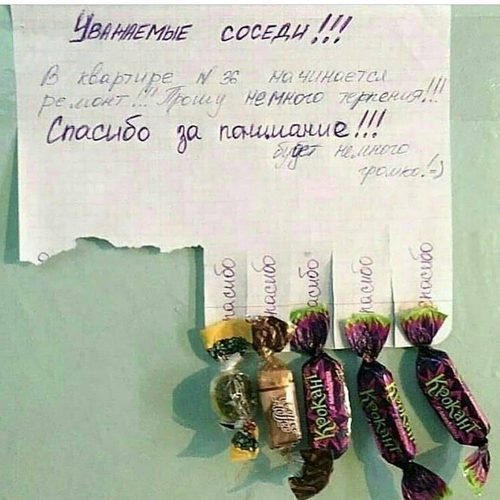 Уважаемые соседи!!!
В квартире N 36 начинается
ремонт!!! Прошу немного терпения!!!
Спасибо за понимание!!!
будет немного
громко! =)
Спасибо
Спасибо
Спасибо
Спасибо
Спасибо
Крокант
Крокант
Крокант
Крокант